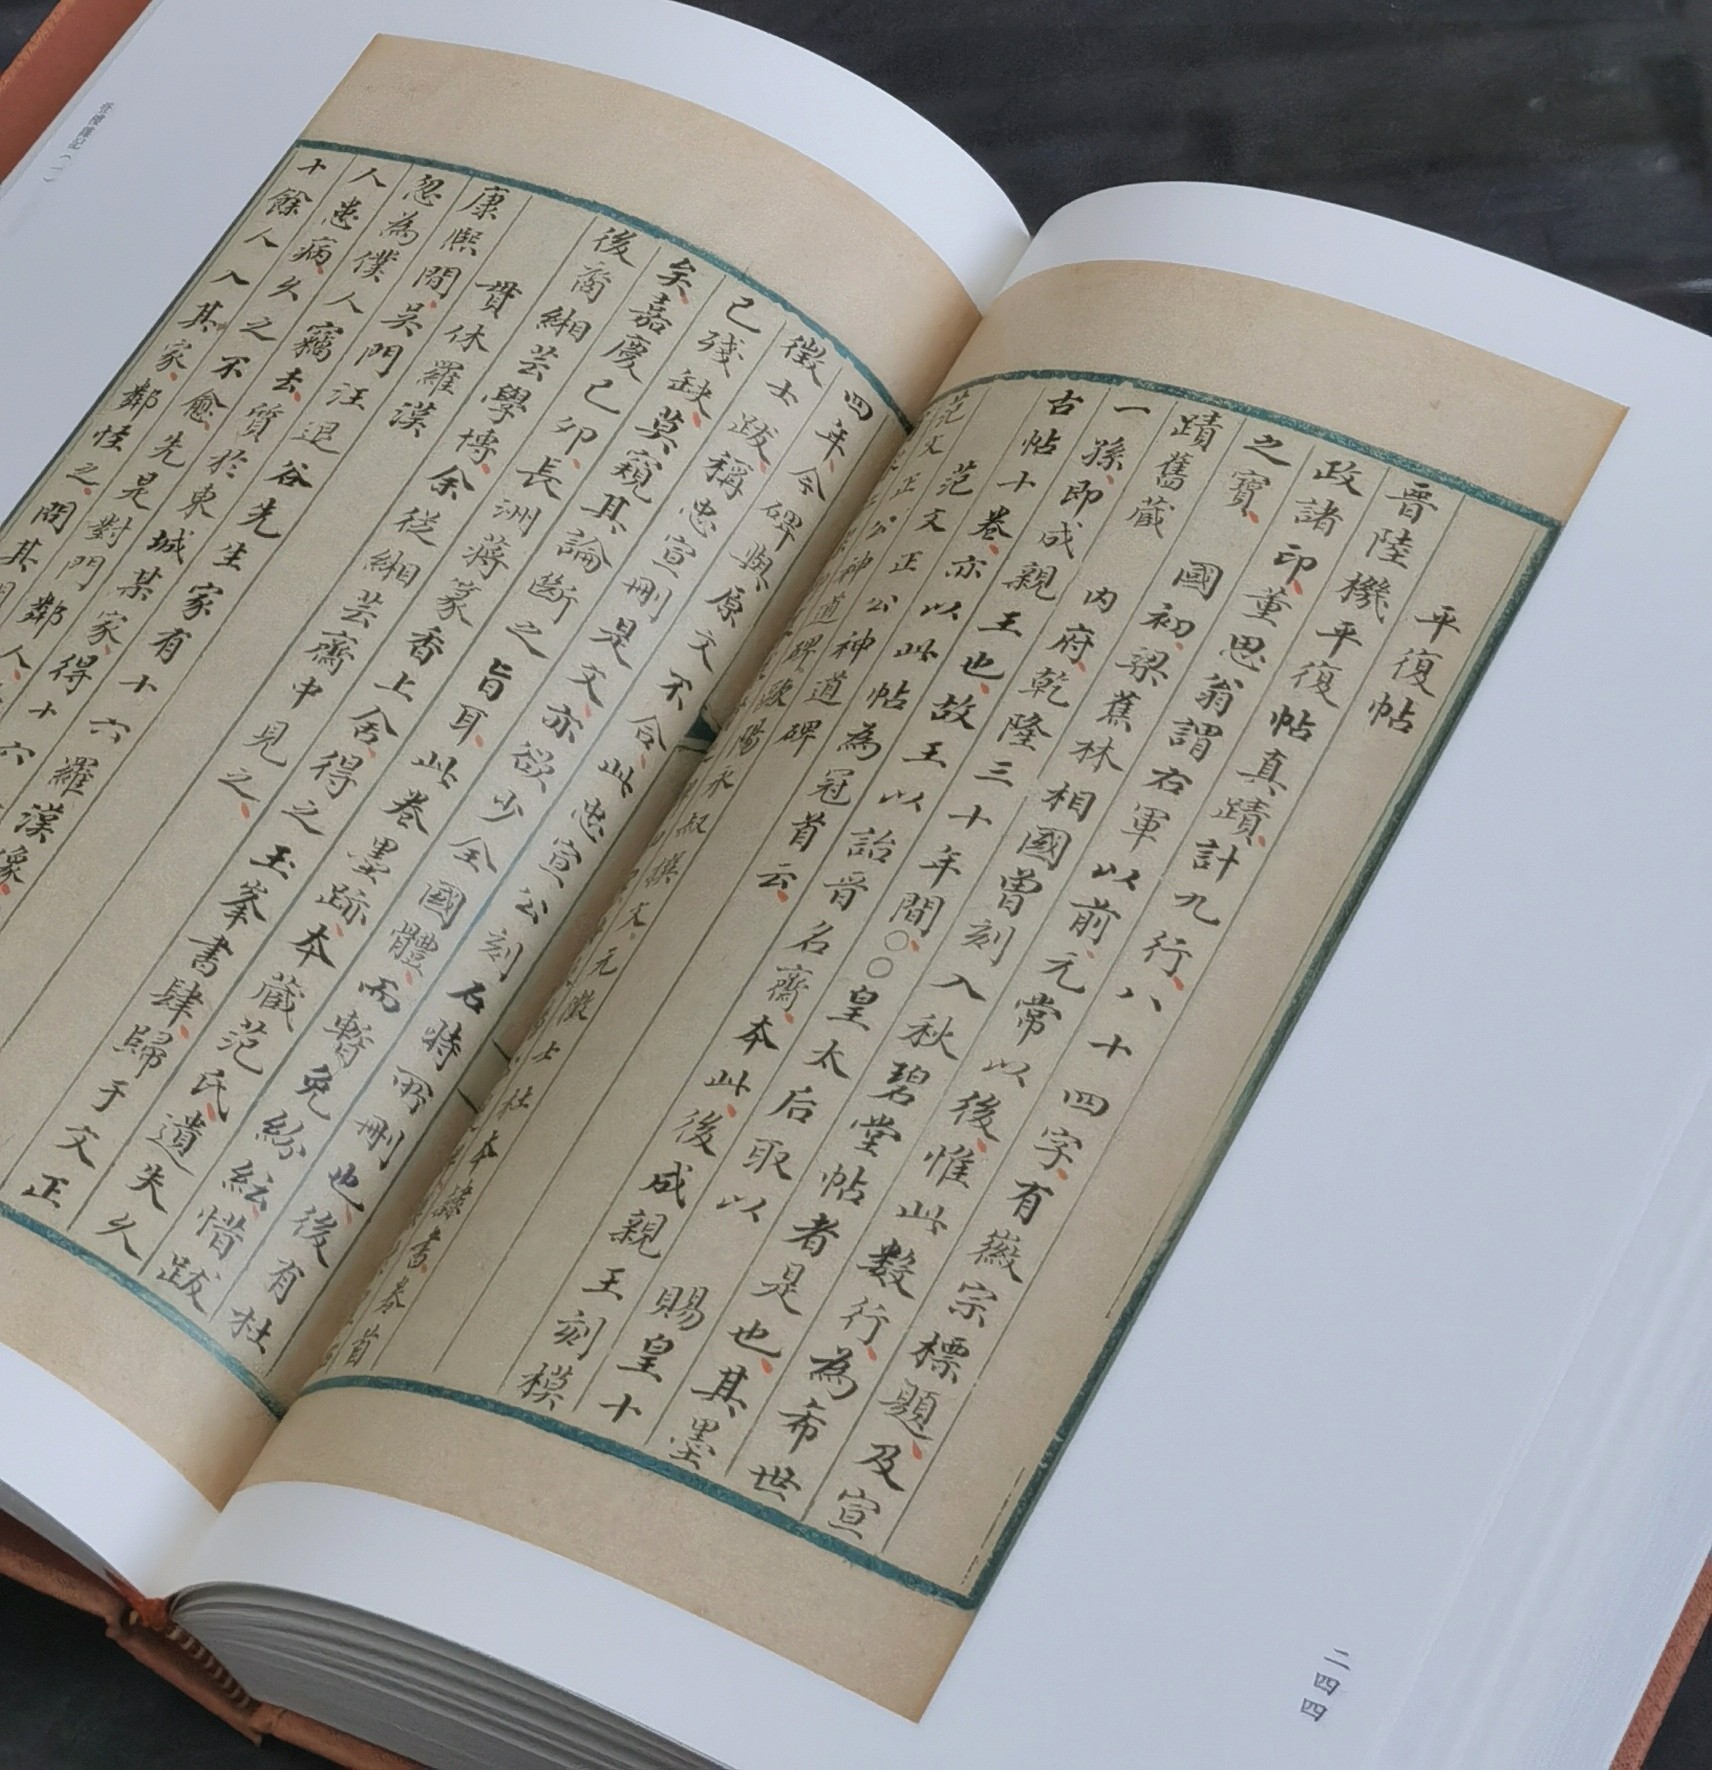 平復帖
晋陸機平復帖真蹟、計九行、八十四字、有徽宗標題、及宣
政諸印、董思翁謂右軍以前、元常以後、惟此數行、為希世
之寶、國初、梁蕉林相國曾刻入秋碧堂帖者是也、其墨
蹟舊藏 内府、乾隆三十年間、〇〇皇太后取以 賜皇十
一孫、即成親王也、故王以詒晋名齋、本此、後成親王刻模
古帖十卷、亦以此帖為冠首云、
范文正公神道碑
范文正公神道碑歐陽永叔撰文、元徵士杜本隸書、卷首
二四四
四年、今碑與原文不合、此忠宣公刻石時所刪也、後有杜
徵士跋、稱忠宣刪是文、亦欲少全國體、而暫免紛紜、惜跋
已殘缺、莫窺其論斷之旨耳、此卷墨跡、本藏范氏、遺失久
矣、嘉慶己卯、長洲蔣篆香上舍、得之玉峯書肆、歸于文正
後裔緗芸學博、余從緗芸齋中見之、
貫休羅漢
康熙間、吳門汪退谷先生家有十六羅漢像、
忽為僕人竊去、質於東城某家、得十六
人患病、久之不愈、先是對門鄰人
十餘人入其家、鄰怪之、問其